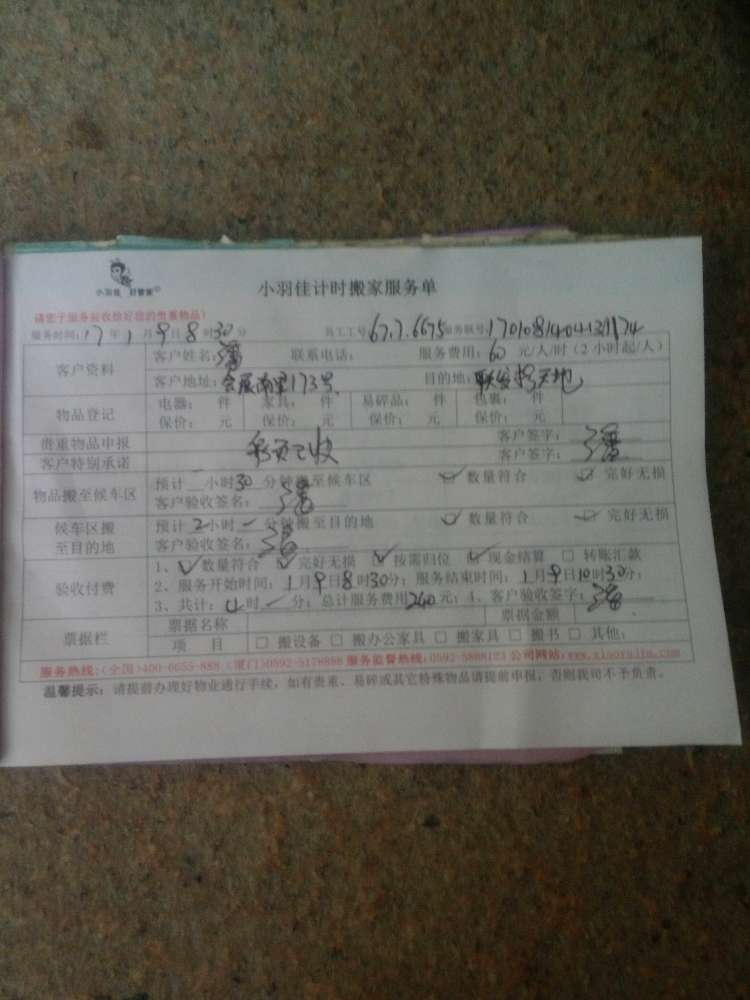 小羽佳 好管家
小羽佳计时搬家服务单
请您于服务验收给好您的贵重物品!
服务时间:17年1月9日8时30分 员工工号67.7.6675 服务联号:1701081404131174
客户资料 客户姓名:潘 联系电话: 服务费用:60元/人/时(2小时起/人)
客户地址:会展南里173号 目的地:联发 天地
物品登记 电器: 件 家具: 件 易碎品: 件 包裹: 件
保价: 元 保价: 元 保价: 元 保价: 元
贵重物品申报 彩页已收 客户签字:潘
客户特别承诺 客户签字:潘
物品搬至候车区 预计 小时30分钟 至候车区 ✓数量符合 ✓完好无损
客户验收签名:潘
候车区搬至目的地 预计2小时-分钟搬至目的地 ✓数量符合 ✓完好无损
客户验收签名:潘
验收付费 1、✓数量符合 ✓完好无损 ✓按需归位 ✓现金结算 □转账汇款
2、服务开始时间:1月9日8时30分;服务结束时间:1月9日10时30分;
3、共计:4时-分;总计服务费用240元;4、客户验收签字:潘
票据栏 票据名称 票据金额
项 目 □搬设备 □搬办公家具 □搬家具 □搬书 □其他:
服务热线:(全国)400-6655-888 (厦门)0592-5178888 服务监督热线:0592-5888123 公司网站:www.xiaoyujia.com
温馨提示:请提前办理好物业通行手续,如有贵重、易碎或其它特殊物品请提前申报,否则我司不予负责。